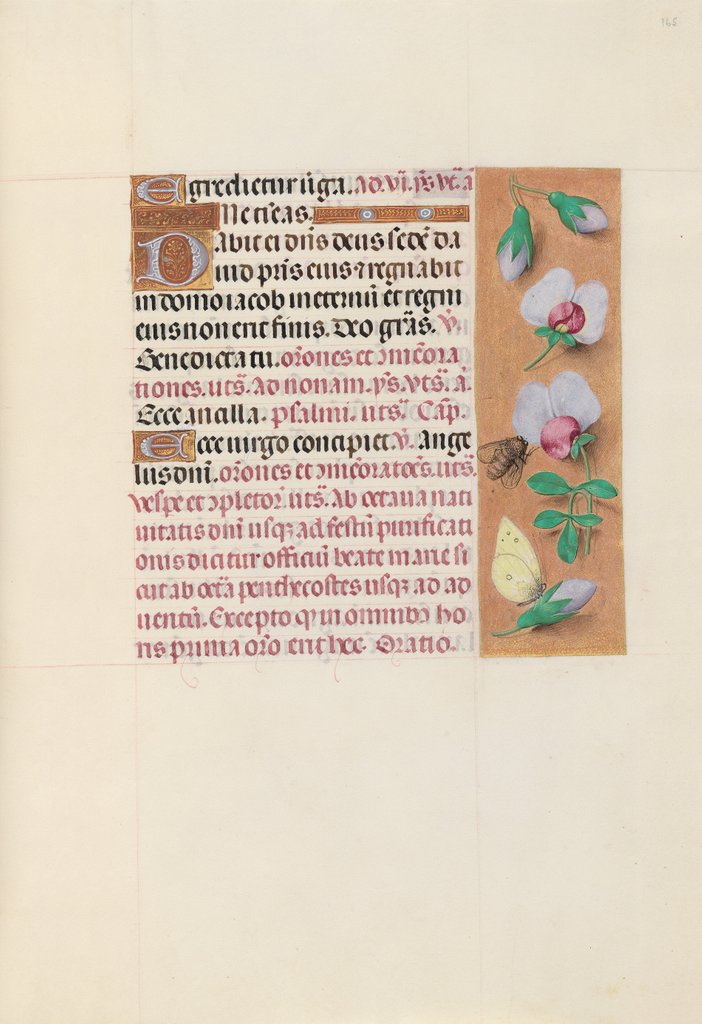 165
Egredietur uirga. Ad. vi. ps. vt. a
Ne timeas.
Dabit ei dn̄s deus sedē da
uid pris̄ eius ⁊ regnabit
in domo iacob in eternū et regni
eius non erit finis. Deo grās. V.
Benedicta tu. orōnes et ɔmēora
tiones. uts̄. Ad nonam. ps̄. vts̄. a.
Ecce ancilla. psalmi. uts̄. Cap.
Ecce uirgo concipiet. V. Ange
lus dnī. orōnes et ɔmēoratōes. uts̄.
Vespe et ɔpletor̄. uts̄. Ab octaua nati
uitatis dnī usqꝫ ad festū purificati
onis dicitur officiū beate marie si
cut ab octā penthecostes usqꝫ ad ad
uentū. Excepto ꝙ in omnibꝫ ho
ris prima orō erit hec. Oratio.